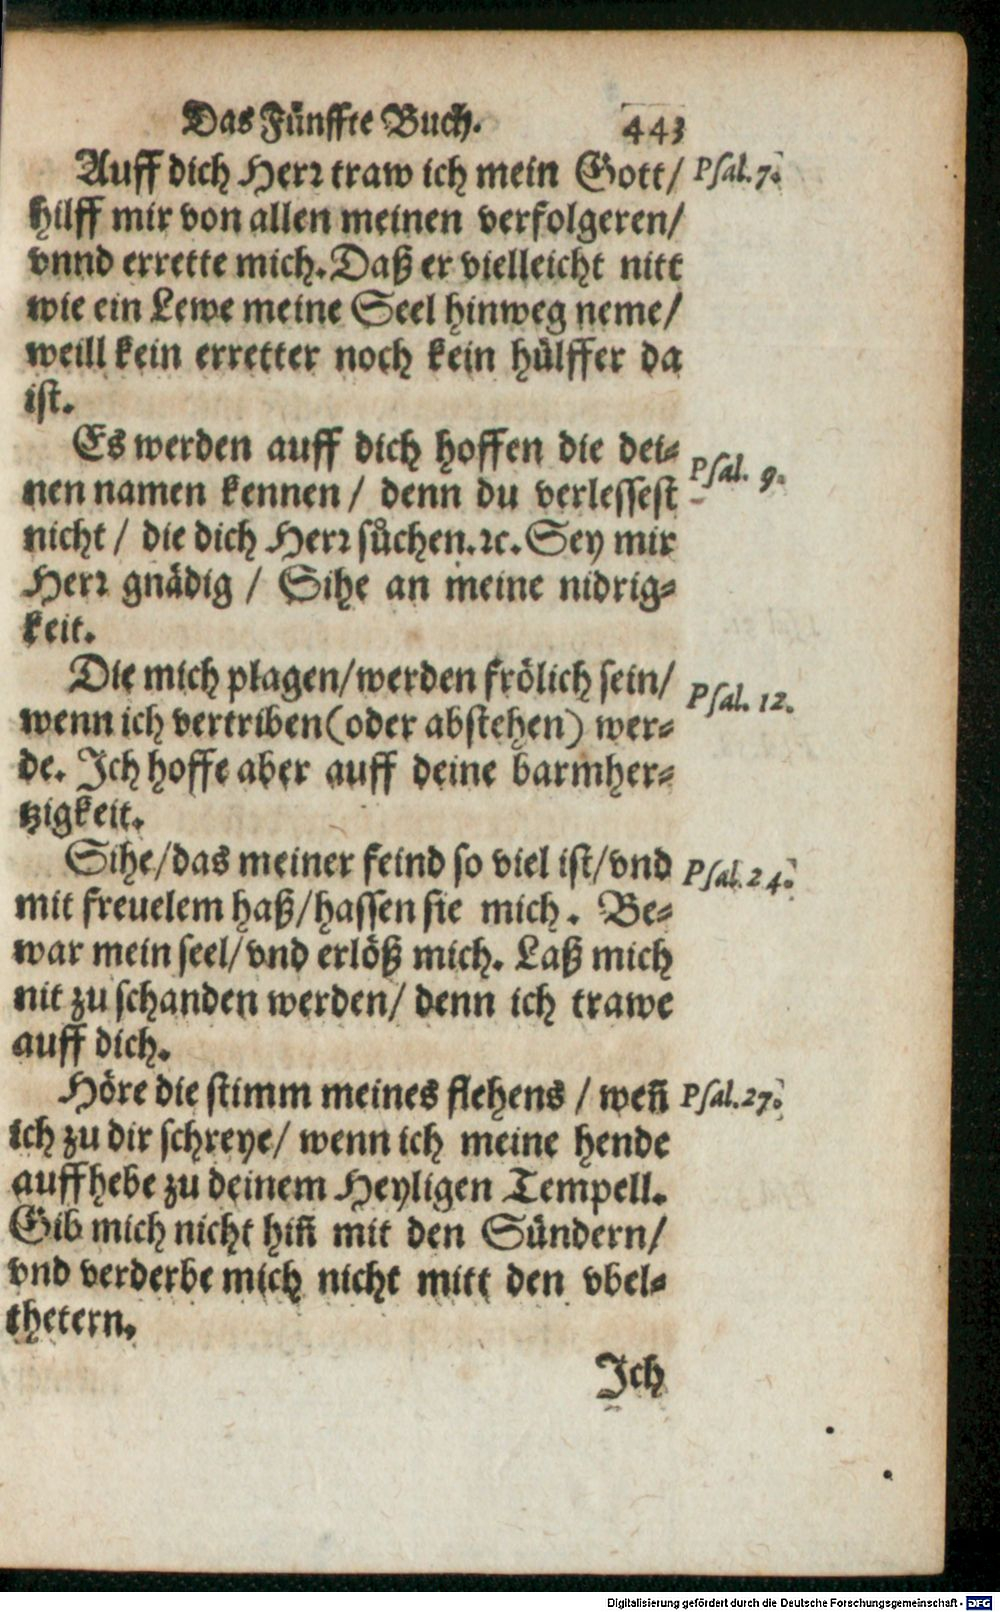 Das Fünffte Buch. 443
Auff dich Herꝛ traw ich mein Gott/ Psal. 7.
hilff mir von allen meinen verfolgeren/
vnnd errette mich. Daß er vielleicht nitt
wie ein Lewe meine Seel hinweg neme/
weill kein erretter noch kein hülffer da
ist.
Es werden auff dich hoffen die dei-
Psal. 9.
nen namen kennen / denn du verlessest
nicht / die dich Herꝛ sůchen. ꝛc. Sey mir
Herꝛ gnädig / Sihe an meine nidrig-
keit.
Die mich plagen/werden frölich sein/ Psal. 12.
wenn ich vertriben (oder abstehen) wer-
de. Ich hoffe aber auff deine barmher-
tzigkeit.
Sihe/das meiner feind so viel ist/vnd Psal. 24.
mit freuelem haß/hassen sie mich. Be-
war mein seel/vnd erlöß mich. Laß mich
nit zu schanden werden/ denn ich trawe
auff dich.
Höre die stimm meines flehens / weñ Psal. 27.
ich zu dir schreye/ wenn ich meine hende
auffhebe zu deinem Heyligen Tempell.
Gib mich nicht hiñ mit den Sündern/
vnd verderbe mich nicht mitt den vbel-
thetern.
Ich
Digitalisierung gefördert durch die Deutsche Forschungsgemeinschaft - DFG